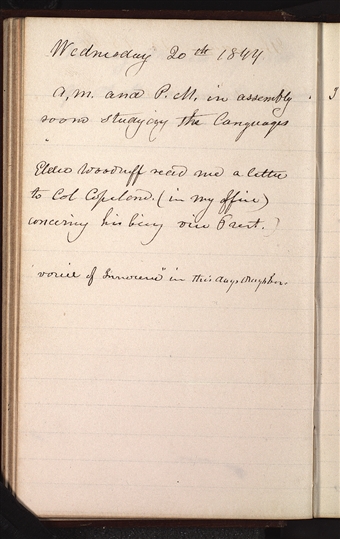 Wednesday 20th 1844
A, M. and P. M. in assembly
room studying the Languages
Elder Woodruff read me a letter
to Col Copeland. (in my office)
concering his being vice Prest.)
"voice of Innocence" in this days Neighbor
3